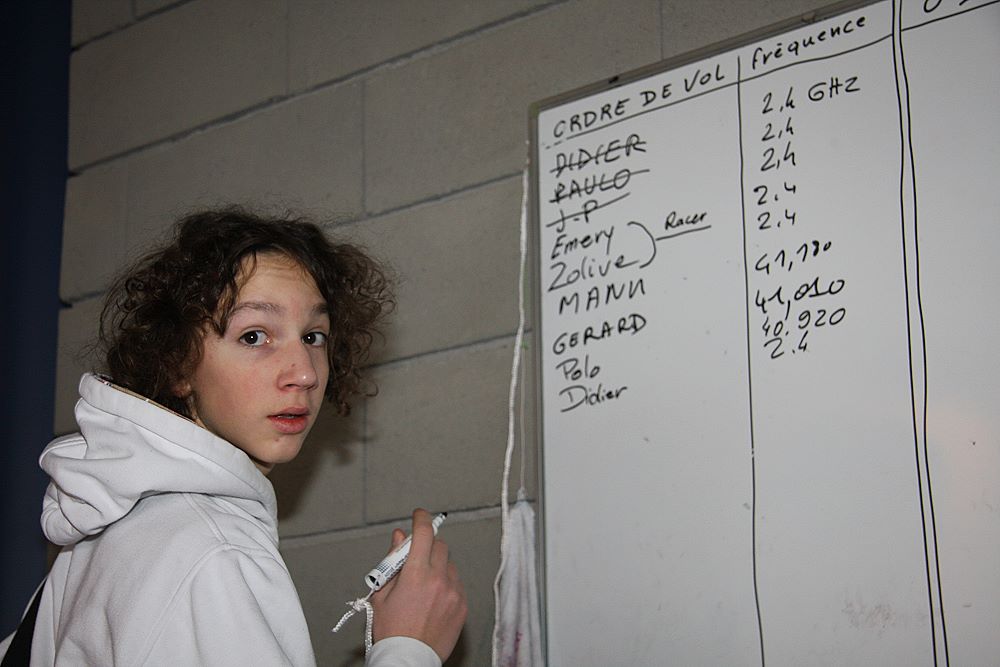 ORDRE DE VOL fréquence
DIDIER 2,4 GHZ
PAULO 2,4
J-P 2,4
Emery Racer 2.4
Zolive 2.4
MANU 41,180
GERARD 41,010
Polo 40.920
Didier 2.4